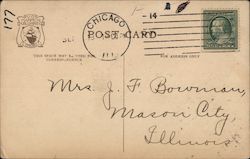 177
CHICAGO
ILL.
14
SEP
POST CARD
THIS SPACE MAY BE USED FOR
CORRESPONDENCE
FOR ADDRESS ONLY
Mrs. J. F. Bowman,
Mason City,
Illinois.